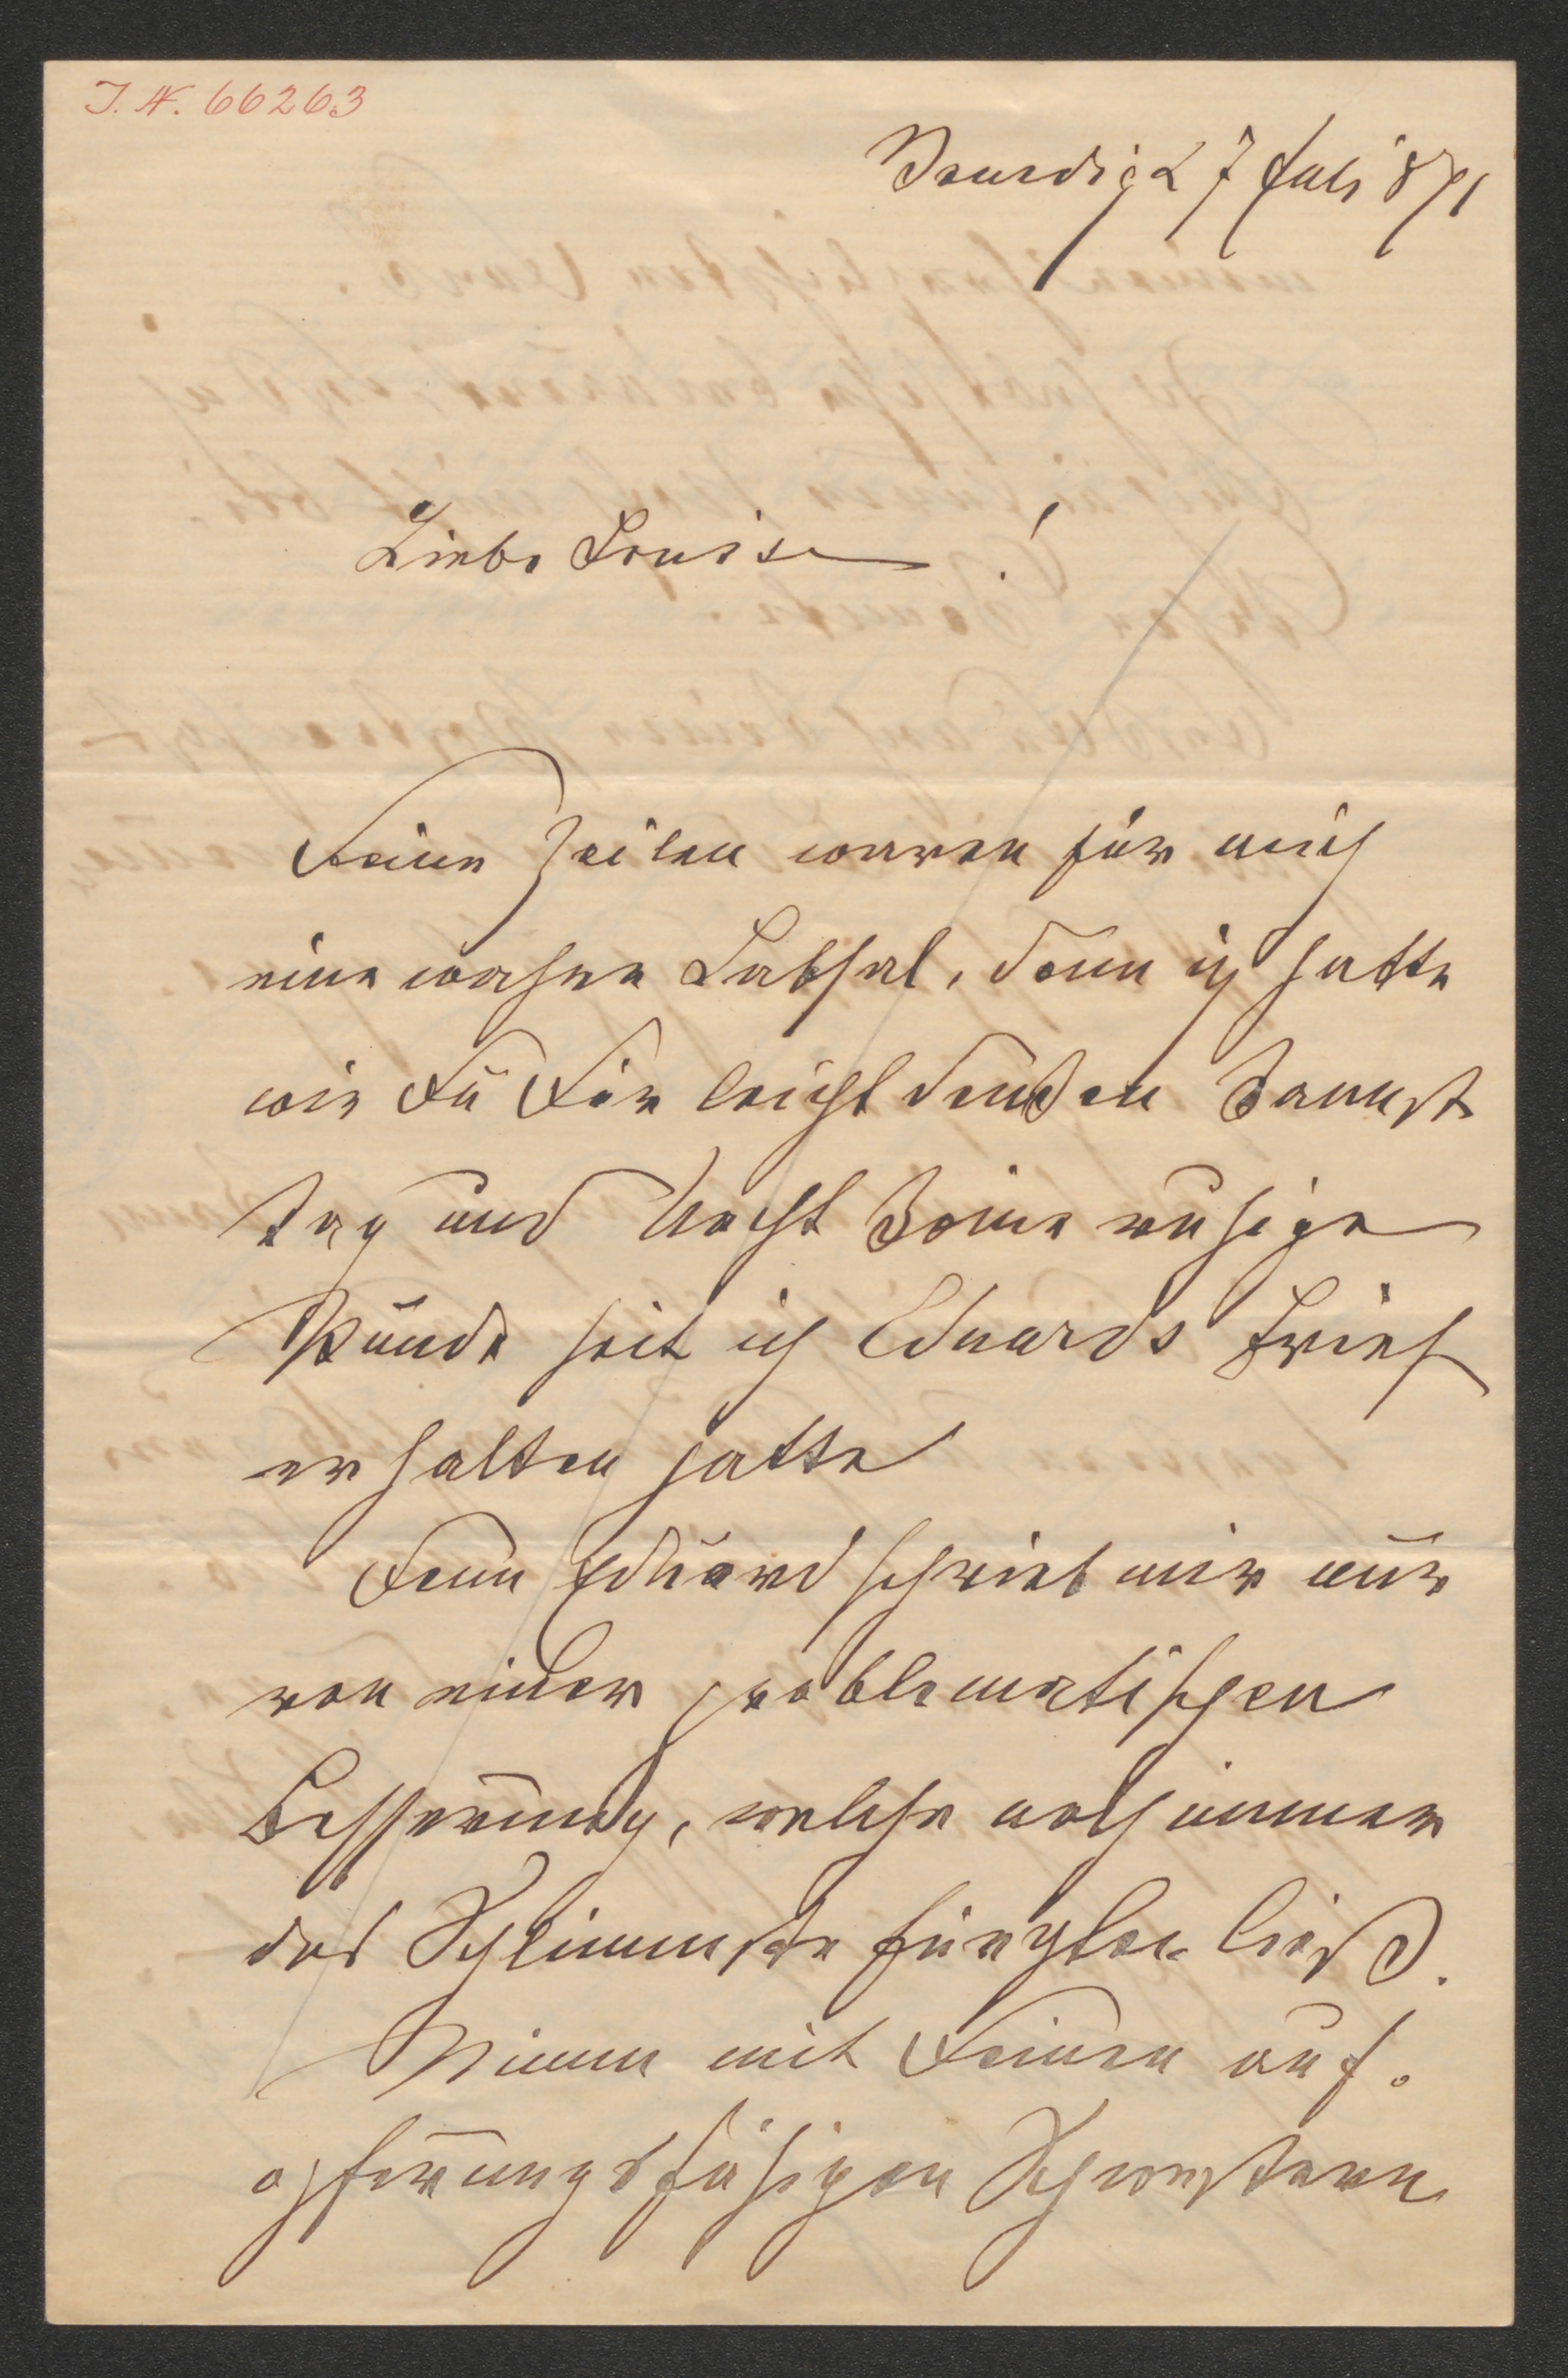 J. N. 66263
Venedig 27 Juli 871
Liebe Louise!
Deine Zeilen waren für mich
eine wahre Labsal, denn ich hatte
wie Du Dir leicht denken kannst
Tag und Nacht keine ruhige
Stunde seit ich Eduards Brief
erhalten hatte
Denn Eduard schrieb mir nur
von einer problematischen
Besserung, welche noch immer
das Schlimmste fürchten ließ.
Nimm mit Deinen auf-
opferungsfähigen Schwestern